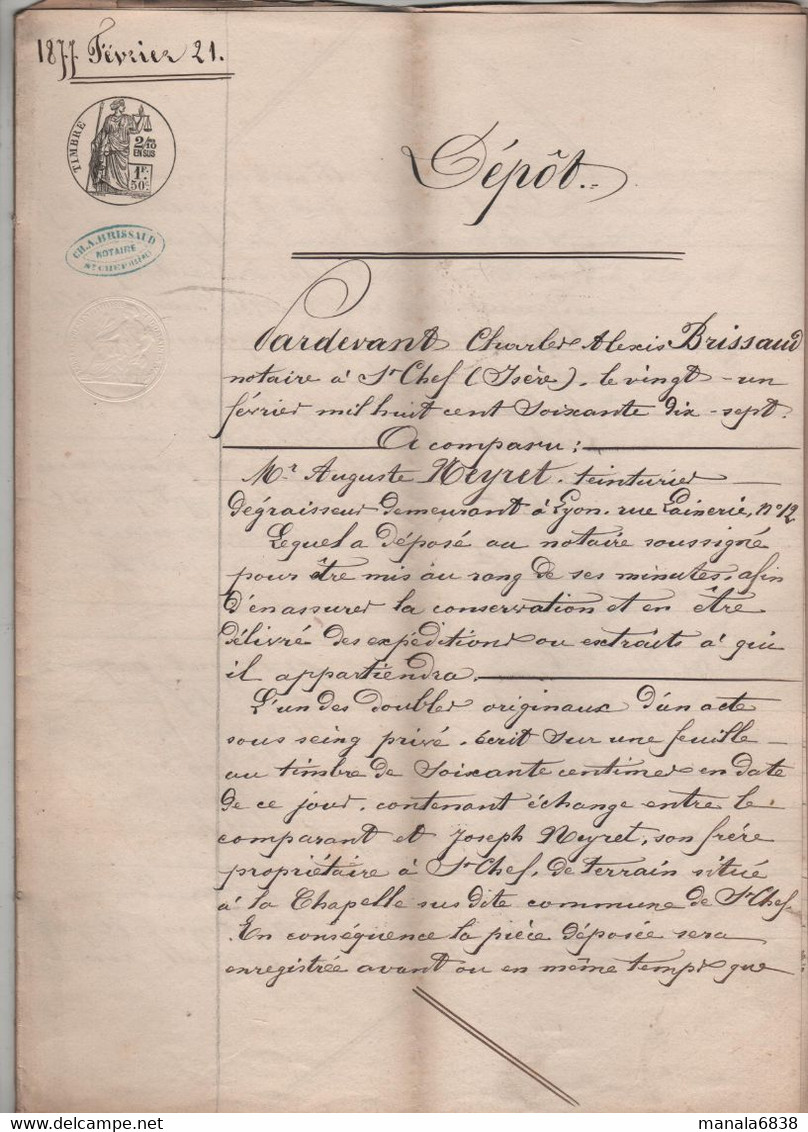 1877 Février 21.
TIMBRE
2/10
EN SUS
1F.
50c.
CH. A. BRISSAUD
NOTAIRE
ST CHEF (ISÈRE)
Dépôt.
Pardevant Charles Alexis Brissaud
notaire à St Chef (Isère), le vingt-un
février mil huit cent soixante dix-sept.
A comparu:
Mr Auguste Neyret, teinturier
dégraisseur demeurant à Lyon, rue Lainerie, no 12
Lequel a déposé au notaire soussigné
pour être mis au rang de ses minutes, afin
d'en assurer la conservation et en être
délivré des expéditions ou extraits à qui
il appartiendra.
L'un des doubles originaux d'un acte
sous seing privé, écrit sur une feuille
au timbre de soixante centimes en date
de ce jour, contenant échange entre le
comparant et Joseph Neyret, son frère
propriétaire à St Chef, de terrain situé
à la Chapelle sus dite commune de St Chef.
En conséquence la pièce déposée sera
enregistrée avant ou en même temps que
manala6838